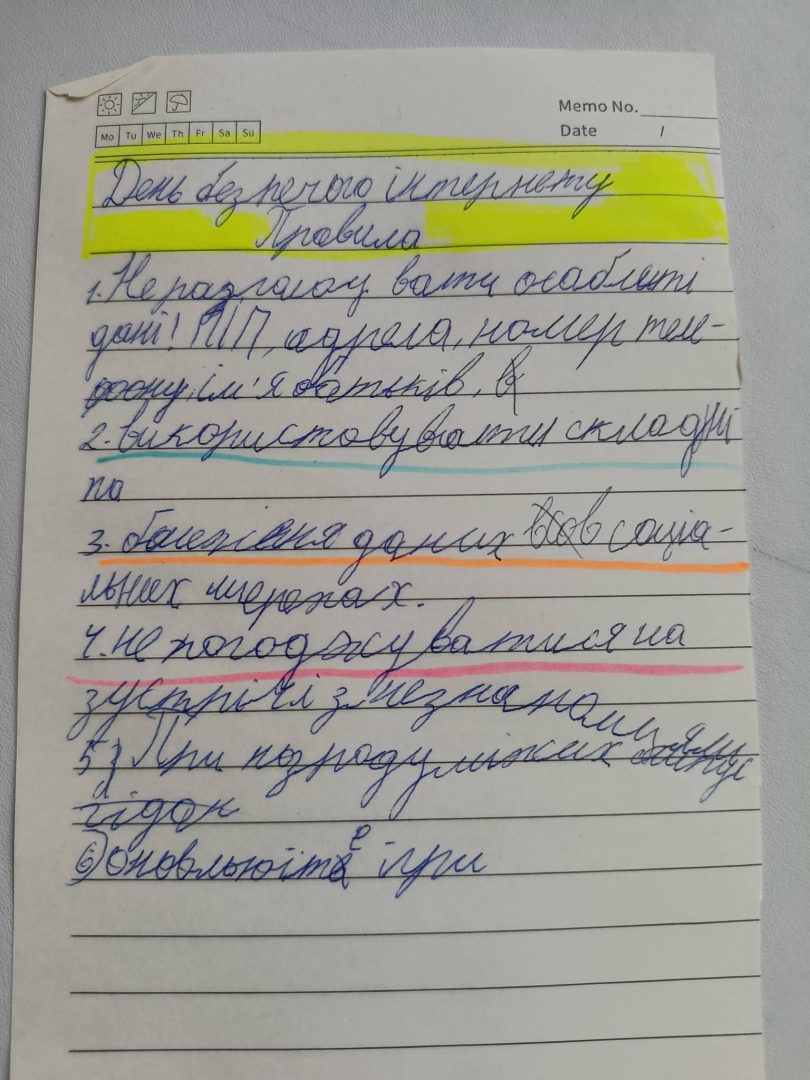 Memo No.
Mo Tu We Th Fr Sa Su
Date /
День безпечого інтернету
Правила
1. Не разголошувати особлеті
дані! ПІП, адреса, номер теле-
фону, ім'я батьків.
2. використовувати складні
па
3. обмеженя даних в соціа-
льних мережах.
4. не погоджуватися на
зустрічі з незнаномиями
5) При
6) оновлюйте ігри